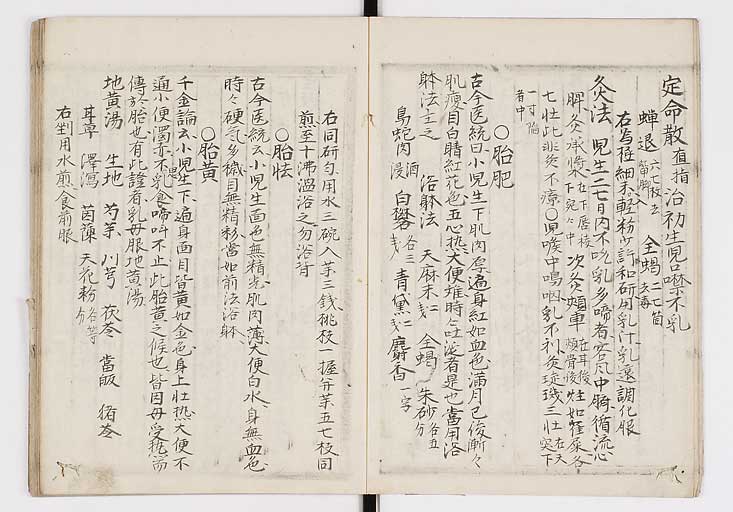 定命散 直指 治初生児口噤不乳
蟬退 六七枚去觜脚 全蝎 二七箇去毒
右為極細末軽粉少許和研用乳汁乳遠調化服
灸法 児生二七日内不吃乳多啼者客風中臍循流心
脾灸承漿 在下唇稜下宛々中 次灸頰車 在耳後頰骨後 炷如雀屎各
七壮此非灸不療○児喉中鳴咽乳不利灸璇璣三壮 在天突下
一寸陥者中
○胎肥
古今医統曰小児生下肌肉厚遍身紅如血色満月已後漸々
肌瘦目白睛紅花色五心熱大便難時々吐涎者是也当用浴
躰法主之 浴躰法 天麻末 全蝎 朱砂 各五分
烏蛇肉 酒浸 白礬 各三 青黛 麝香 一字
右同研匀用水三碗入羊三銭桃枝一握并葉五七枝同
煎至十沸温浴之勿浴背
○胎怯
古今医統云小児生面色無精光肌肉薄大便白水身無血色
時々硬気多穢目無精彩当如前法浴躰
○胎黄
千金論云小児生下遍身面目皆黄如金色身上壮熱大便不
通小便濁赤不乳食啼叫不止此胎黄之候也皆因母受熱
傳於胎也有此證者乳母服地黄湯
地黄湯 生地 芍薬 川芎 茯苓 當皈 猪苓
甘草 澤瀉 茵蔯 天花粉 各等分
右剉用水煎食前服